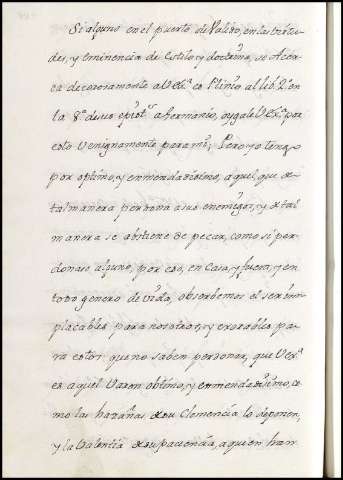 Si alguno en el puerto de Valido, en las virtu-
des, y eminencia de estilo, y doctrina, se acer-
ca decorosamente a V Exª es Plinio al lib. 2º en
la 8ª de sus epistª a Germanio, oygale V Exª por
esto venignamente para mi; Pero yo tengo
por optimo, y enmendadissimo, aquel, que de
tal manera perdona a sus enemigos, y de tal
manera se abstiene de pecar, como si per-
donase alguno, por eso, en casa, y fuera, y en
todo genero de vida, observemos el ser im-
placables para nosotros, y exorables pa-
ra estos que no saben perdonar, que V Exª
es aquel Varon obtimo, y enmendadissimo, co-
mo las hazañas de su Clemencia lo deponen,
y la Valentia de su paciencia, a quien han